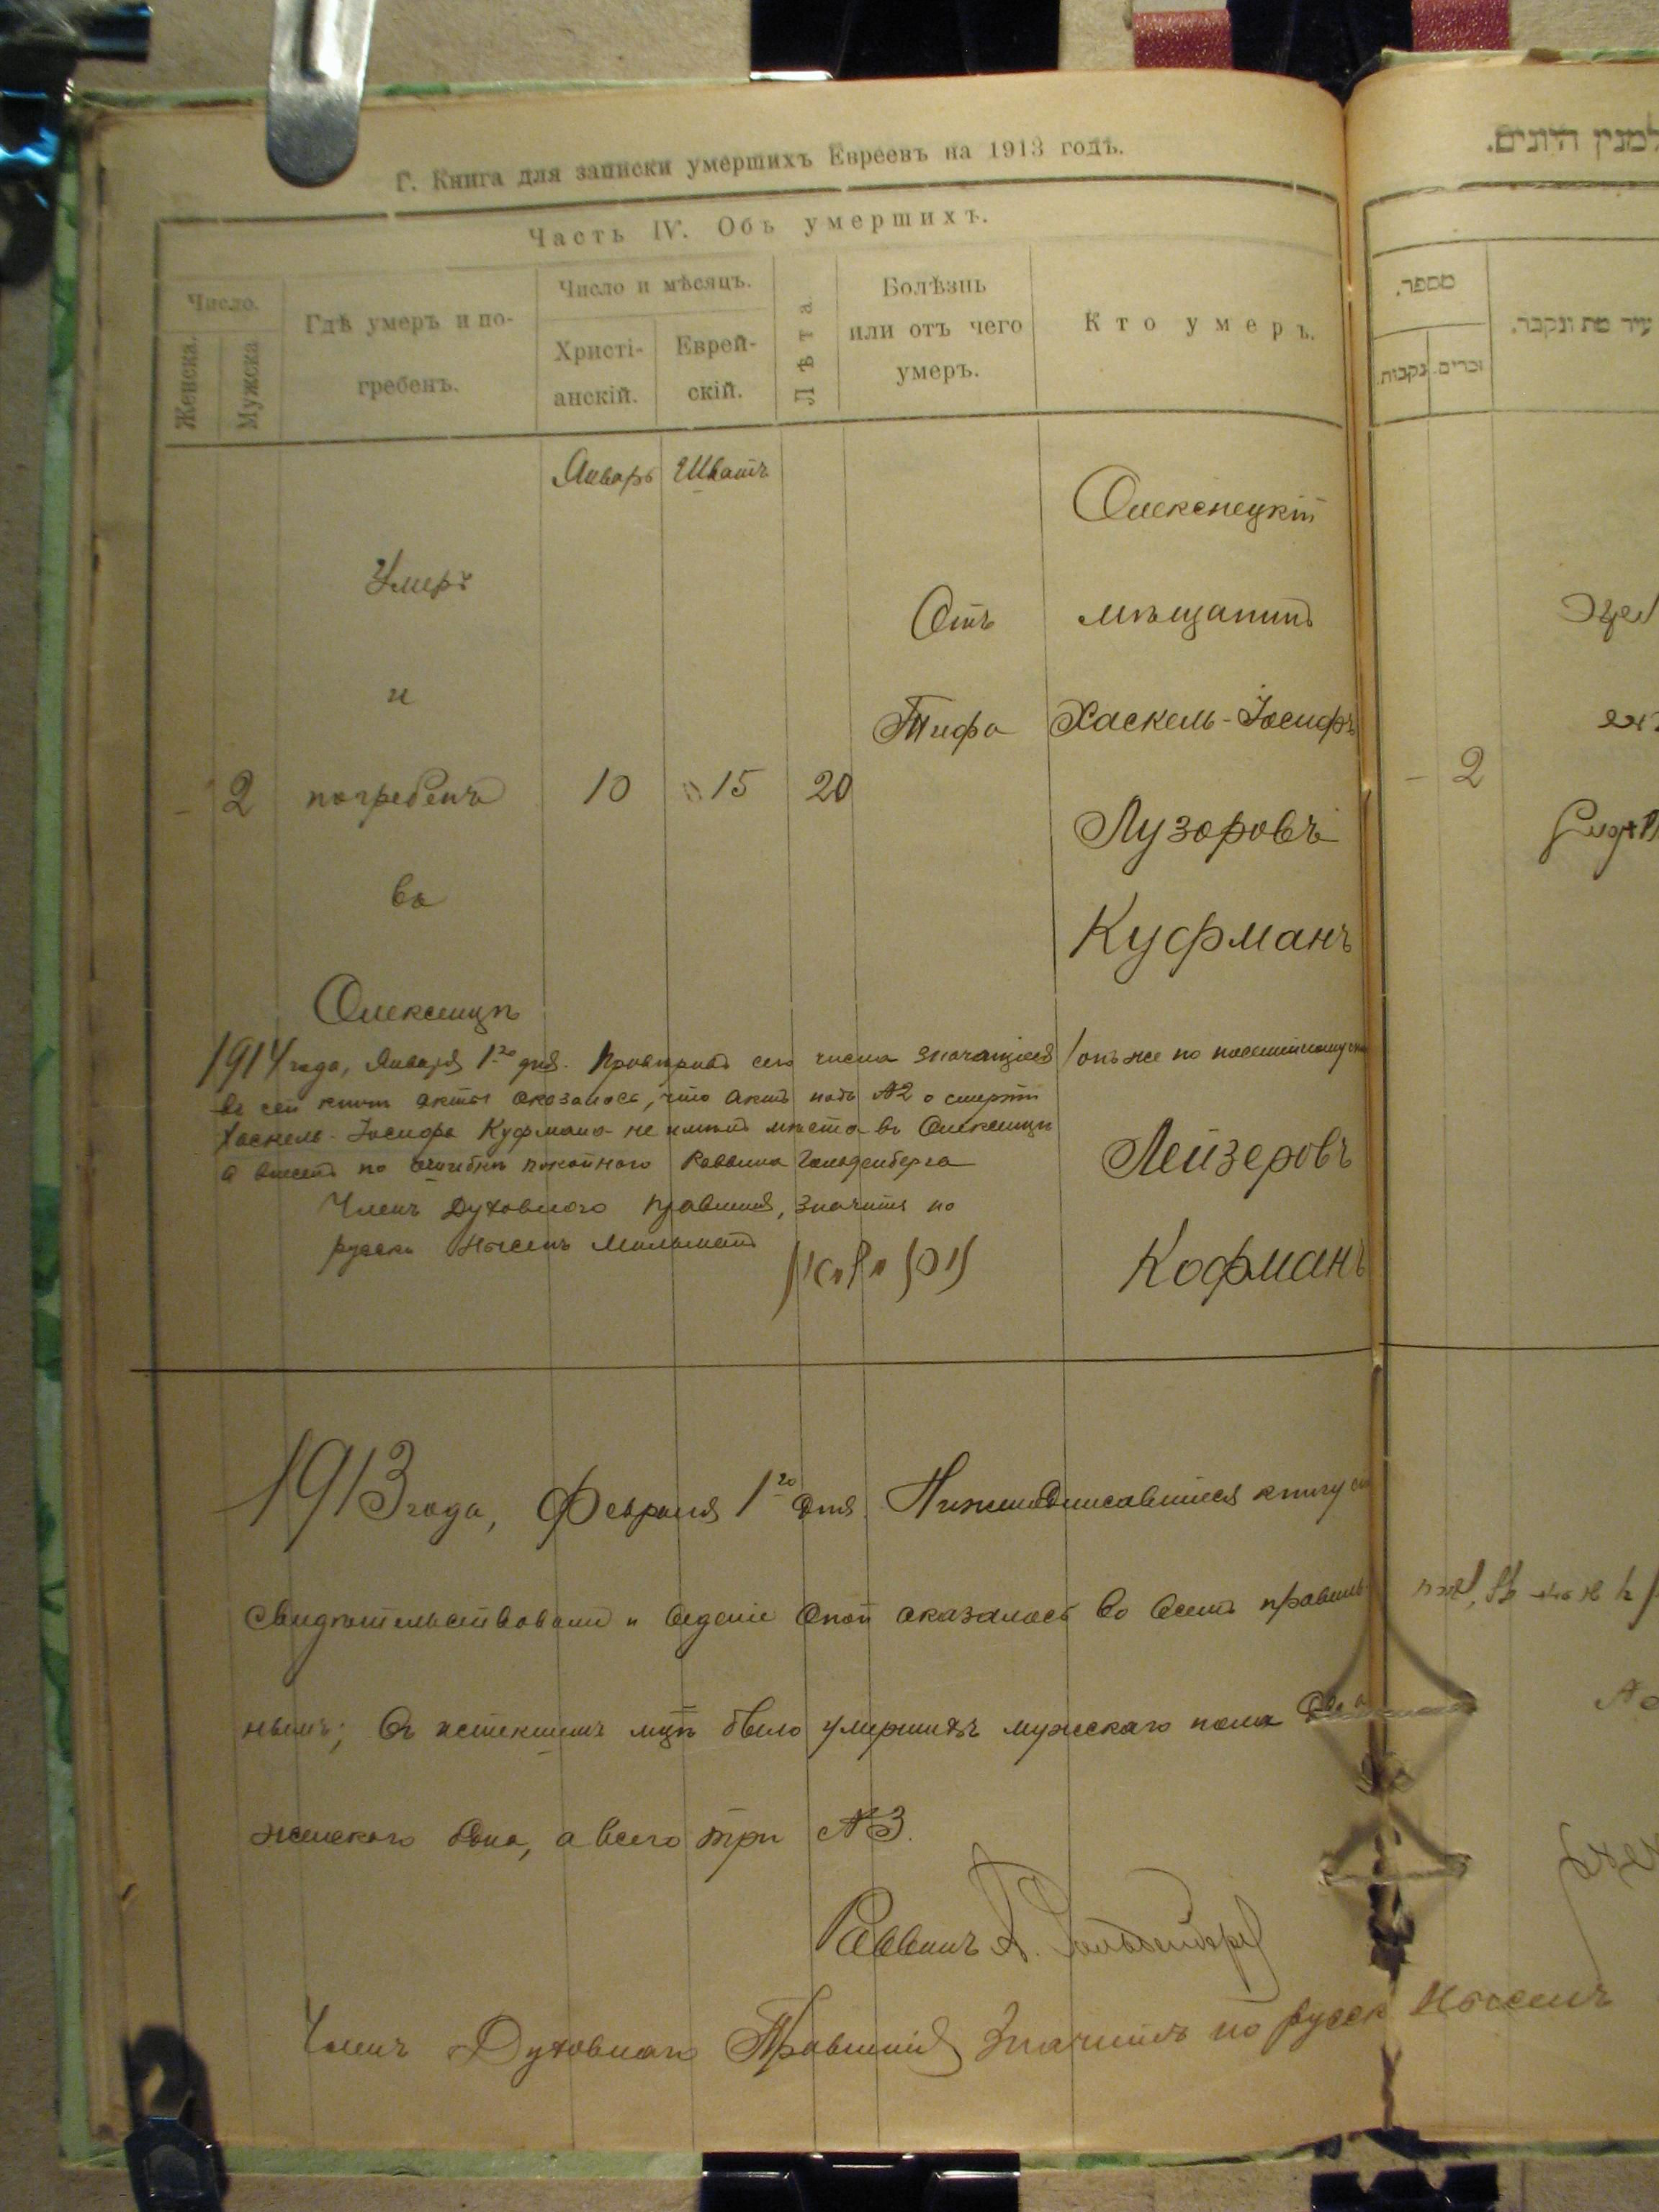 Г. Книга для записки умершихъ Евреевъ на 1913 годъ.
Часть IV. Объ умершихъ.
Число.
Женска.
Мужска
Гдѣ умеръ и по-
гребенъ.
Число и мѣсяцъ.
Христі-
анскій.
Еврей-
скій.
Лѣта.
Болѣзнь
или отъ чего
умеръ.
Кто умеръ.
Январь Шватъ
Умеръ
и
погребенъ
въ
Олексинцѣ
- 2
10
15
20
Отъ
Тифа
Олексинецкій
мѣщанинъ
Хаскель-Іосифъ
Лузоровъ
Куфманъ
/онъ же по
Лейзеровъ
Кофманъ
1914 года, Января 1го дня. Провѣривъ сего числа значащіеся
въ сей книгѣ акты оказалось, что актъ подъ №2 о смерти
Хаскель-Іосифа Куфмана не имѣлъ мѣста въ Олексинцѣ
а внесенъ по ошибкѣ покойнаго Раввина Гольденберга
Членъ Духовнаго Правленія, значитъ по
русски Нысенъ
1913 года, Февраля 1го дня. Нижеподписавшіеся книгу сію
свидѣтельствовали и веденіе оной оказалось во всемъ правиль-
нымъ; Въ истекшемъ мцѣ было умершихъ мужскаго пола два
женскаго одна, а всего три №3.
Раввинъ А. Гольденбергъ
Членъ Духовнаго Правленія Значитъ по русск Нысенъ
למנין היונים.
מספר.
נקבות.
זכרים.
עיר מת ונקבר.
- 2